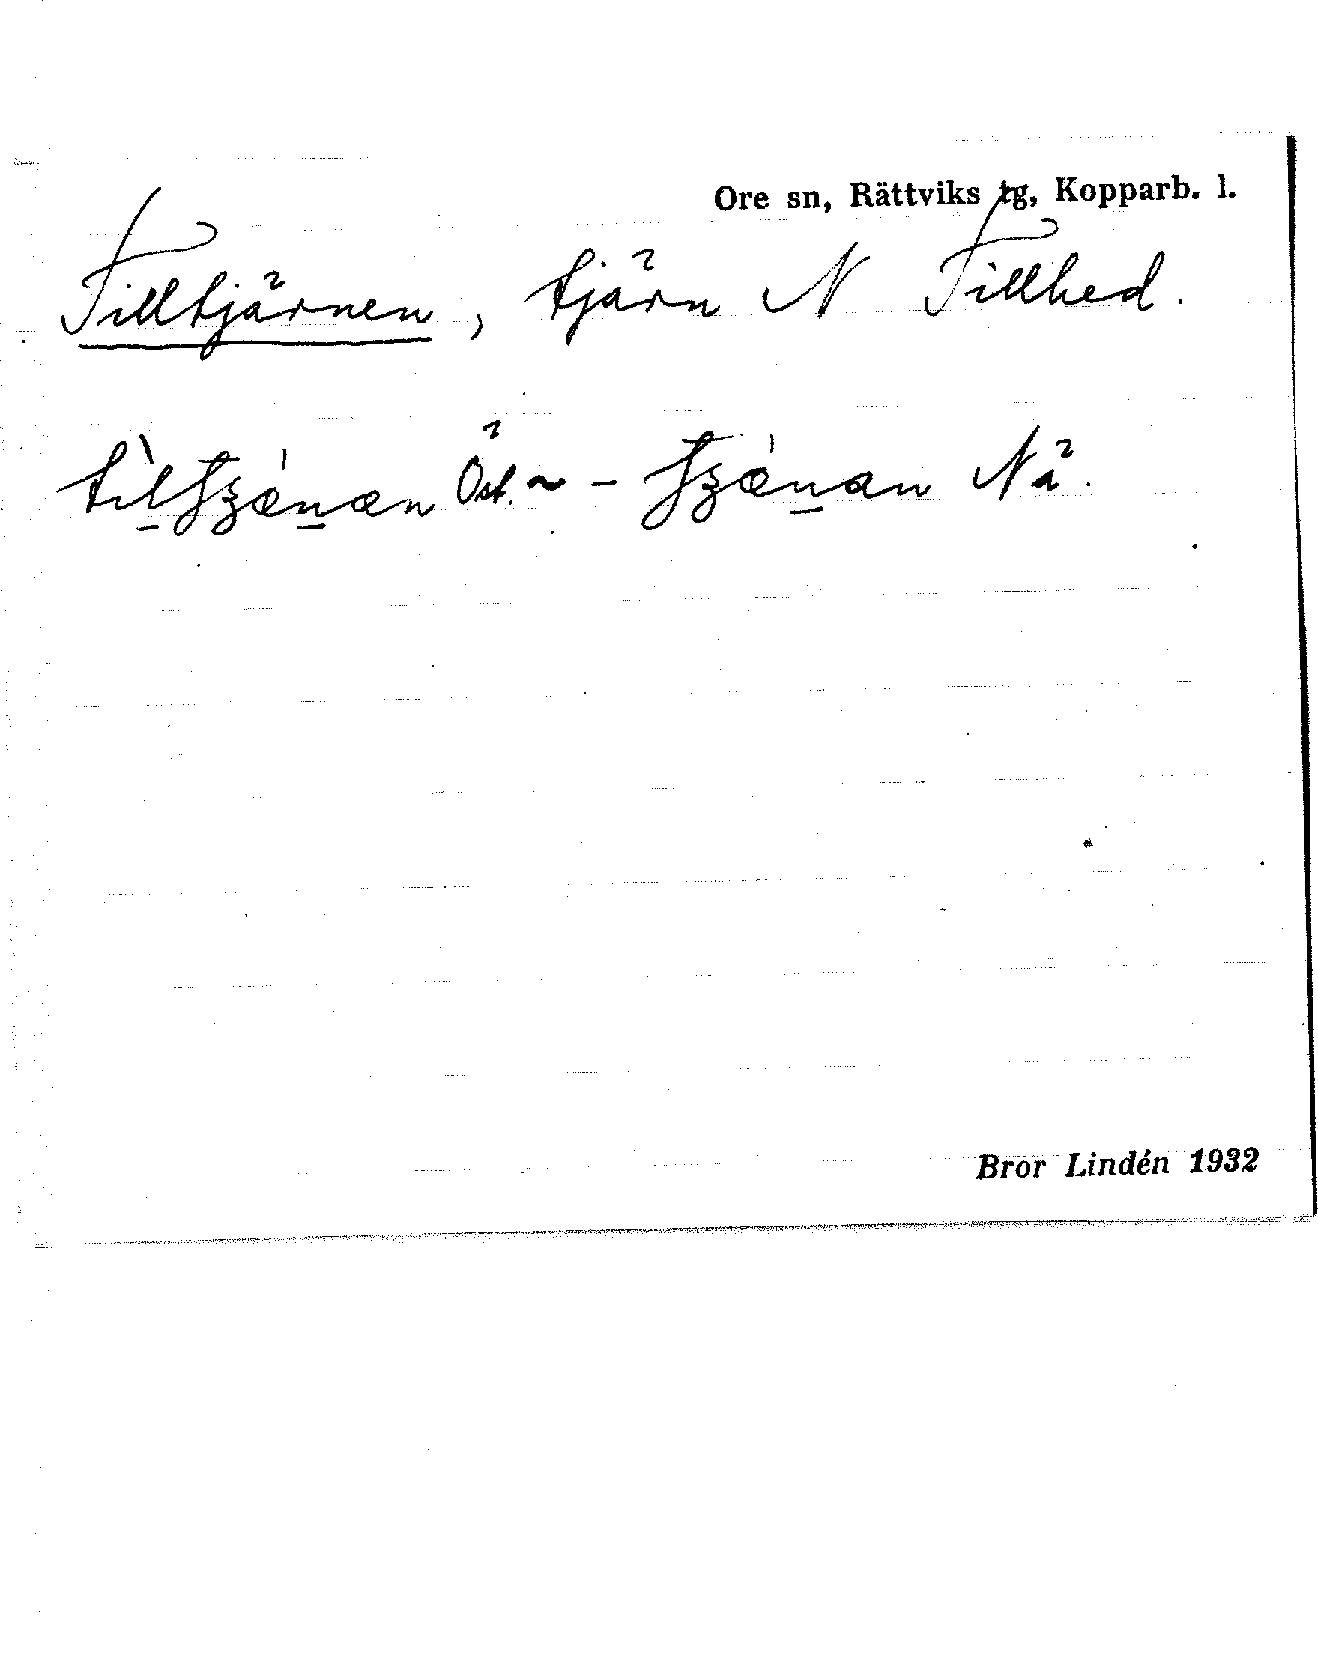 Ore sn, Rättviks tg, Kopparb. l.
Tilltjärnen, tjärn N Tillhed.
Öst. ~ - Nä.
Bror Lindén 1932